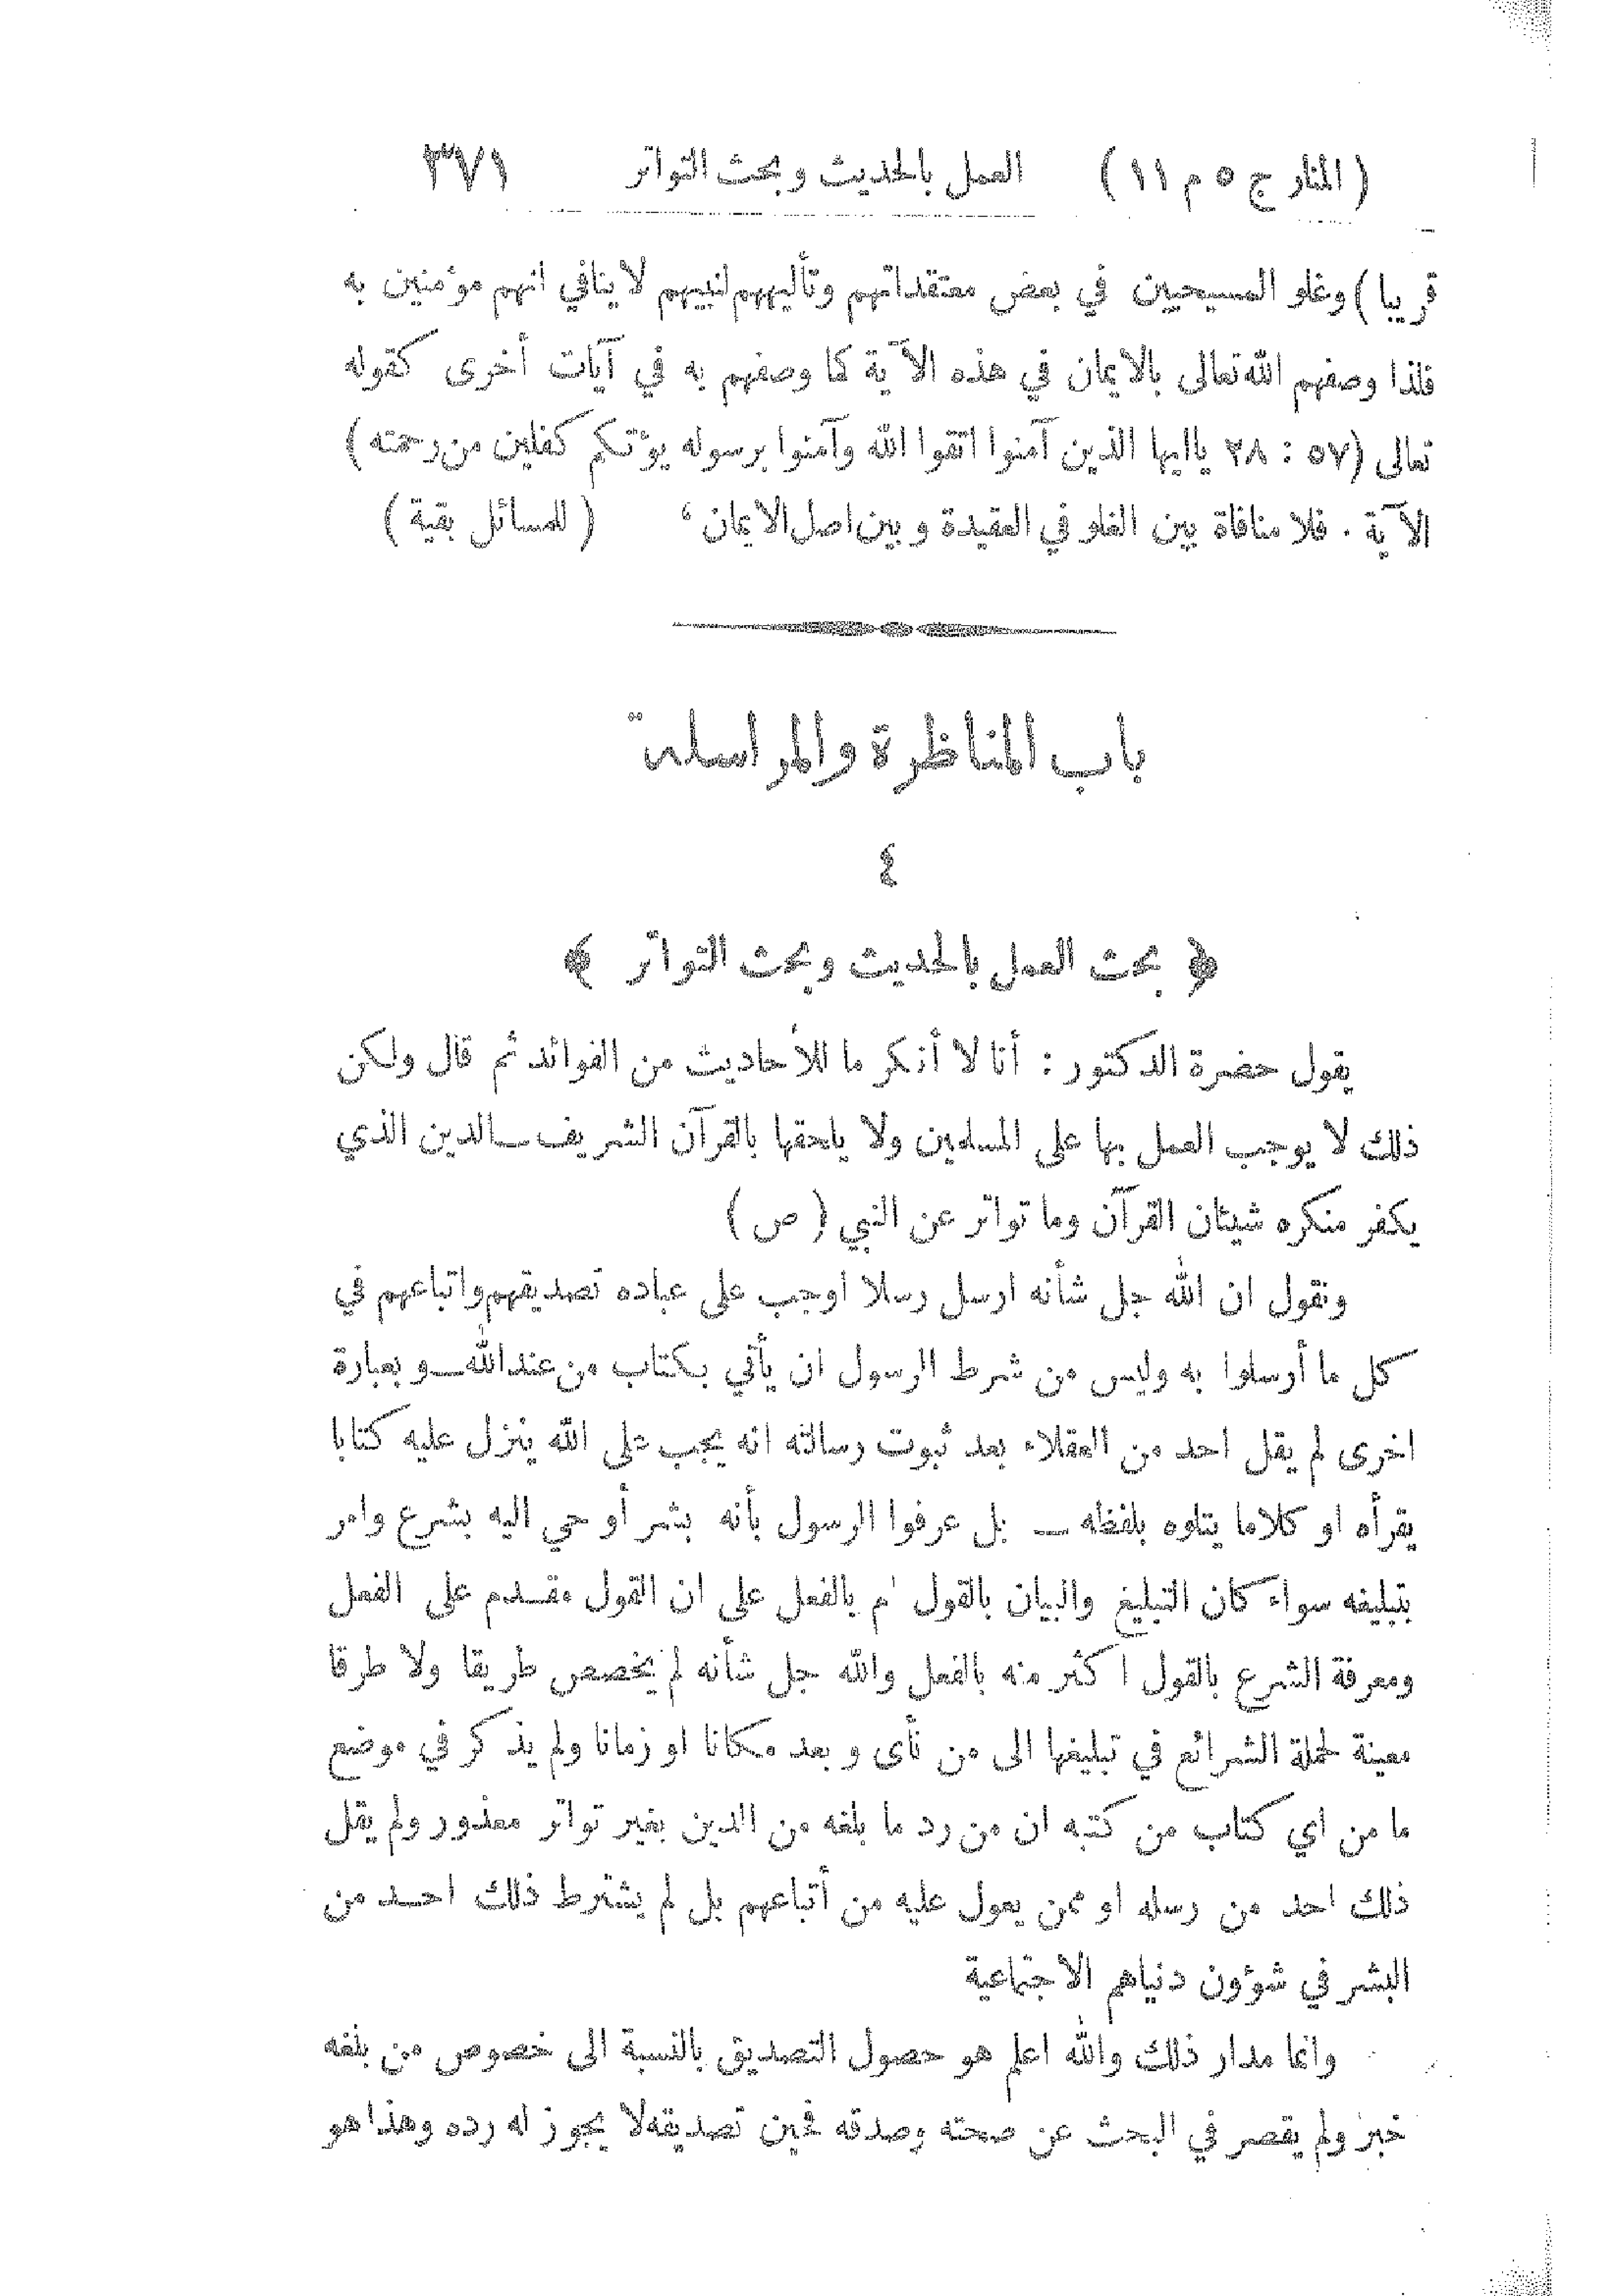 ( المنار ج ٥ م ١١ ) العمل بالحديث وبحث التواتر ٣٧١
قريبا ) وغلو المسيحيين في بعض معتقداتهم وتأليههم لنبيهم لا ينافي انهم مؤمنين به
فلذا وصفهم الله تعالى بالايمان في هذه الآية كما وصفهم به في آيات أخرى كقوله
تعالى ( ٥٧ : ٢٨ ياايها الذين آمنوا اتقوا الله وآمنوا برسوله يؤتكم كفلين من رحمته )
الآية . فلا منافاة بين الغلو في العقيدة وبين اصل الايمان ، ( للمسائل بقية )
باب المناظرة والمراسلة
٤
﴿ بحث العمل بالحديث وبحث التواتر ﴾
يقول حضرة الدكتور : أنا لا أنكر ما للأحاديث من الفوائد ثم قال ولكن
ذلك لا يوجب العمل بها على المسلمين ولا يلحقها بالقرآن الشريف ــ الدين الذي
يكفر منكره شيئان القرآن وما تواتر عن النبي ( ص )
ونقول ان الله جل شأنه ارسل رسلا اوجب على عباده تصديقهم واتباعهم في
كل ما أرسلوا به وليس من شرط الرسول ان يأتي بكتاب من عند الله ــ وبعبارة
اخرى لم يقل احد من العقلاء بعد ثبوت رسالته انه يجب على الله ينزل عليه كتابا
يقرأه او كلاما يتلوه بلفظه ــ بل عرفوا الرسول بأنه بشر أوحي اليه بشرع وامر
بتبليغه سواء كان التبليغ والبيان بالقول ام بالفعل على ان القول مقدم على الفعل
ومعرفة الشرع بالقول اكثر منه بالفعل والله جل شأنه لم يخصص طريقا ولا طرقا
معينة لحملة الشرائع في تبليغها الى من نأى وبعد مكانا او زمانا ولم يذكر في موضع
ما من اي كتاب من كتبه ان من رد ما بلغه من الدين بغير تواتر معذور ولم يقل
ذلك احد من رسله او ممن يعول عليه من أتباعهم بل لم يشترط ذلك احد من
البشر في شؤون دنياهم الاجتماعية
وانما مدار ذلك والله اعلم هو حصول التصديق بالنسبة الى خصوص من بلغه
خبر ولم يقصر في البحث عن صحته وصدقه فحين تصديقه لا يجوز له رده وهذا هو